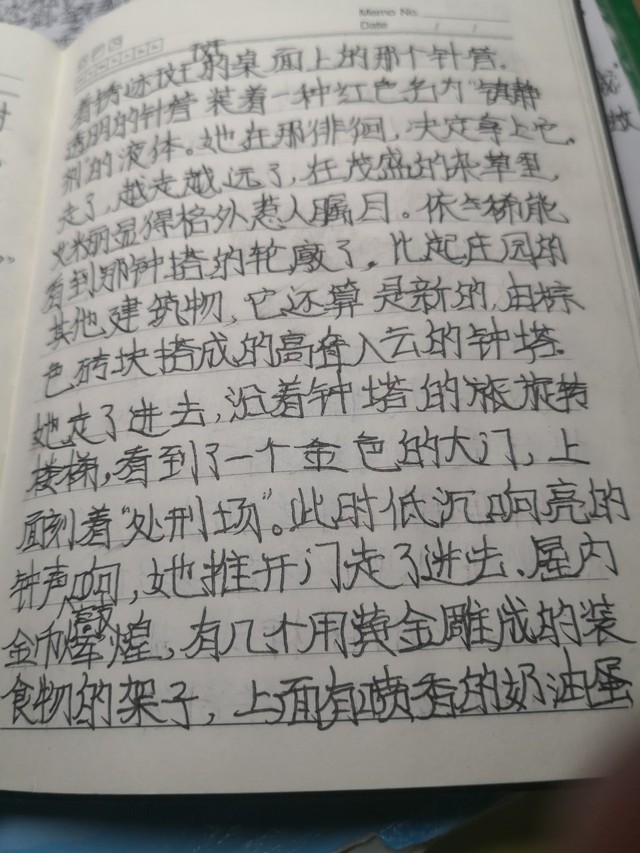 Memo No.
Date / /
着锈迹斑斑的桌面上的那个针管.
透明的针管装着一种红色名为“镇静
剂”的液体。她在那徘徊,决定拿上它。
走了,越走越远了,在茂盛的杂草里,
显得格外惹人瞩目。依然能
看到那钟塔的轮廓了。比起庄园的
其他建筑物,它还算是新的,由棕
色砖块搭成的高耸入云的钟塔.
她走了进去,沿着钟塔的旋转
楼梯,看到了一个金色的大门,上
面刻着“处刑场”。此时低沉响亮的
钟声响,她推开门走了进去.屋内
金币辉煌,有几个用黄金雕成的装
食物的架子,上面有喷香的奶油蛋